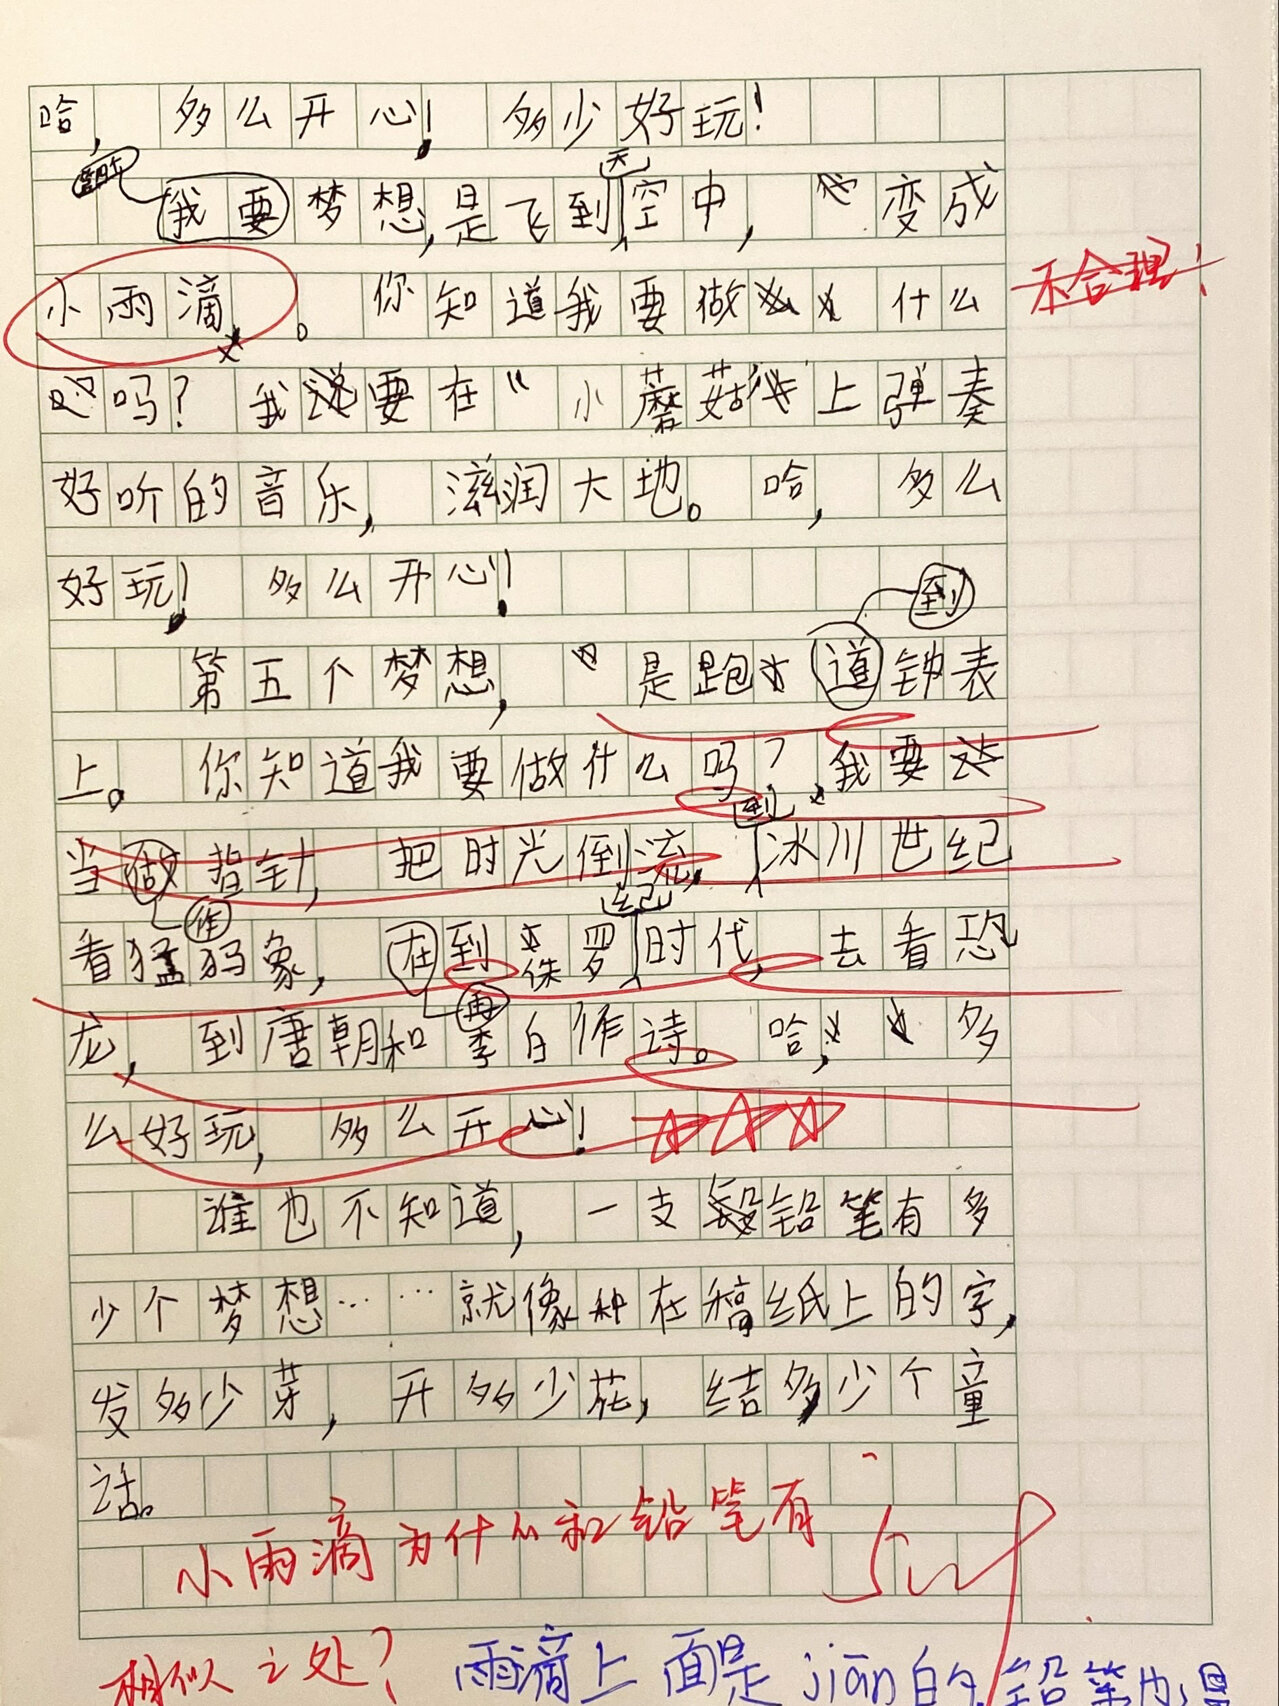 哈，多么开心！多少好玩！
我要梦想，是飞到天空中，变成
小雨滴。你知道我要做什么
不合理！
吗？我要在“小蘑菇”上弹奏
好听的音乐，滋润大地。哈，多么
好玩！多么开心！
到
第五个梦想，是跑道钟表
上。你知道我要做什么吗？我要
到
当做指针，把时光倒流，冰川世纪
作
纪
看猛犸象，在到侏罗时代，去看恐
再
龙，到唐朝和李白作诗。哈，多
么好玩，多么开心！
谁也不知道，一支铅笔有多
少个梦想……就像种在稿纸上的字，
发多少芽，开多少花，结多少个童
话。
小雨滴为什么和铅笔有
相似之处？雨滴上面是jian的，铅笔也是